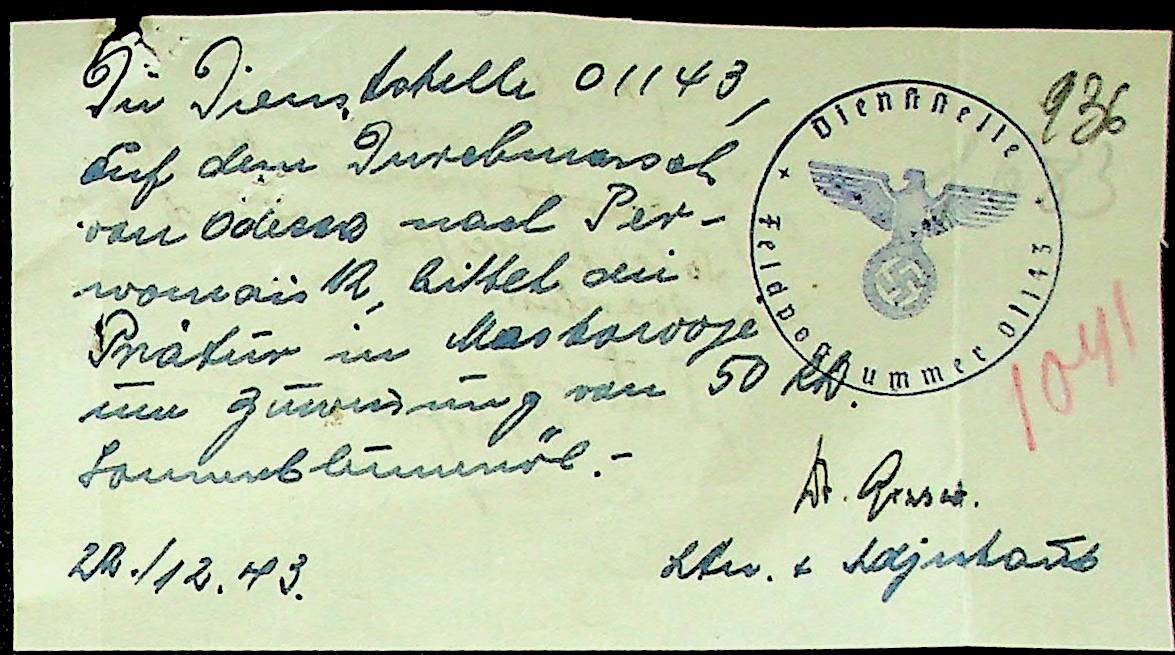 Die Dienststelle 01143,
auf dem Durchmarsch
von Odessa nach Per-
womaisk, bittet die
Prätur in Mostowoje
um Zuweisung von 50 kg.
Sonnenblumenöl.-
Dr.
Ltn. + Adjutant
/12.43.
Dienststelle
Feldpostnummer 01143
936
1041